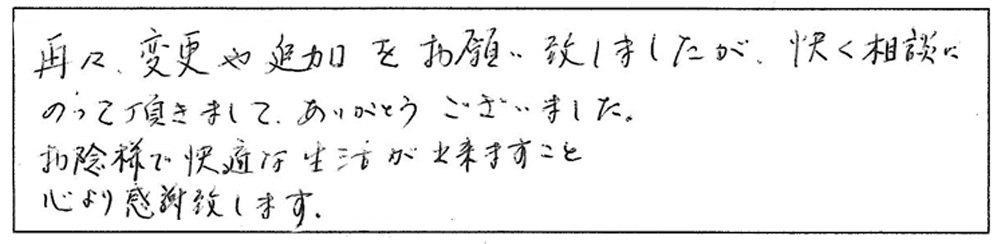 再々、変更や追加をお願い致しましたが、快く相談に
のって頂きまして、ありがとうございました。
お陰様で快適な生活が出来ますこと
心より感謝致します。